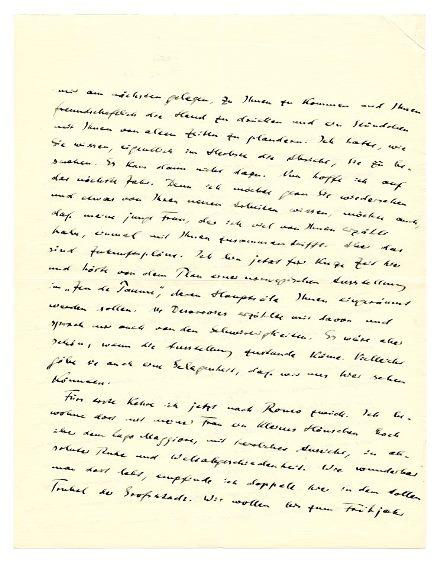 mir am nächsten gelegen, zu Ihnen zu kommen und Ihnen
freundschaftlich die Hand zu drücken und ein Stündchen
mit Ihnen von alten Zeiten zu plaudern. Ich hatte, wie
Sie wissen, eigentlich im Herbste die Absicht, Sie zu be-
suchen. Es kam dann nicht dazu. Nun hoffe ich auf
das nächste Jahr. Denn ich möchte gern Sie wiedersehen
und etwas von Ihren neuen Arbeiten wissen, möchte auch,
daß meine junge Frau, der ich viel von Ihnen erzählt
habe, einmal mit Ihnen zusammentrifft. Aber das
sind Zukunftspläne. Ich bin jetzt für kurze Zeit hier
und hörte von dem Plan einer norwegischen Ausstellung
im „Jeu de Paume", deren Hauptsäle Ihnen eingeräumt
werden sollen. Mr Desrosiers erzählte mir davon und
sprach mir auch von den Schwierigkeiten. Es wäre aber
schön, wenn die Ausstellung zustande käme. Vielleicht
gäbe sie auch eine Gelegenheit, daß wir uns hier sehen
können.
Fürs erste kehre ich jetzt nach Ronco zurück. Ich be-
wohne dort mit meiner Frau ein kleines Häuschen hoch
über dem Lago Maggiore, mit herrlicher Aussicht, in ab-
soluter Ruhe und Weltabgeschiedenheit. Wie wunderbar
man dort lebt, empfinde ich doppelt hier in dem tollen
Trubel der Großstadt. Wir wollen bis zum Frühjahr